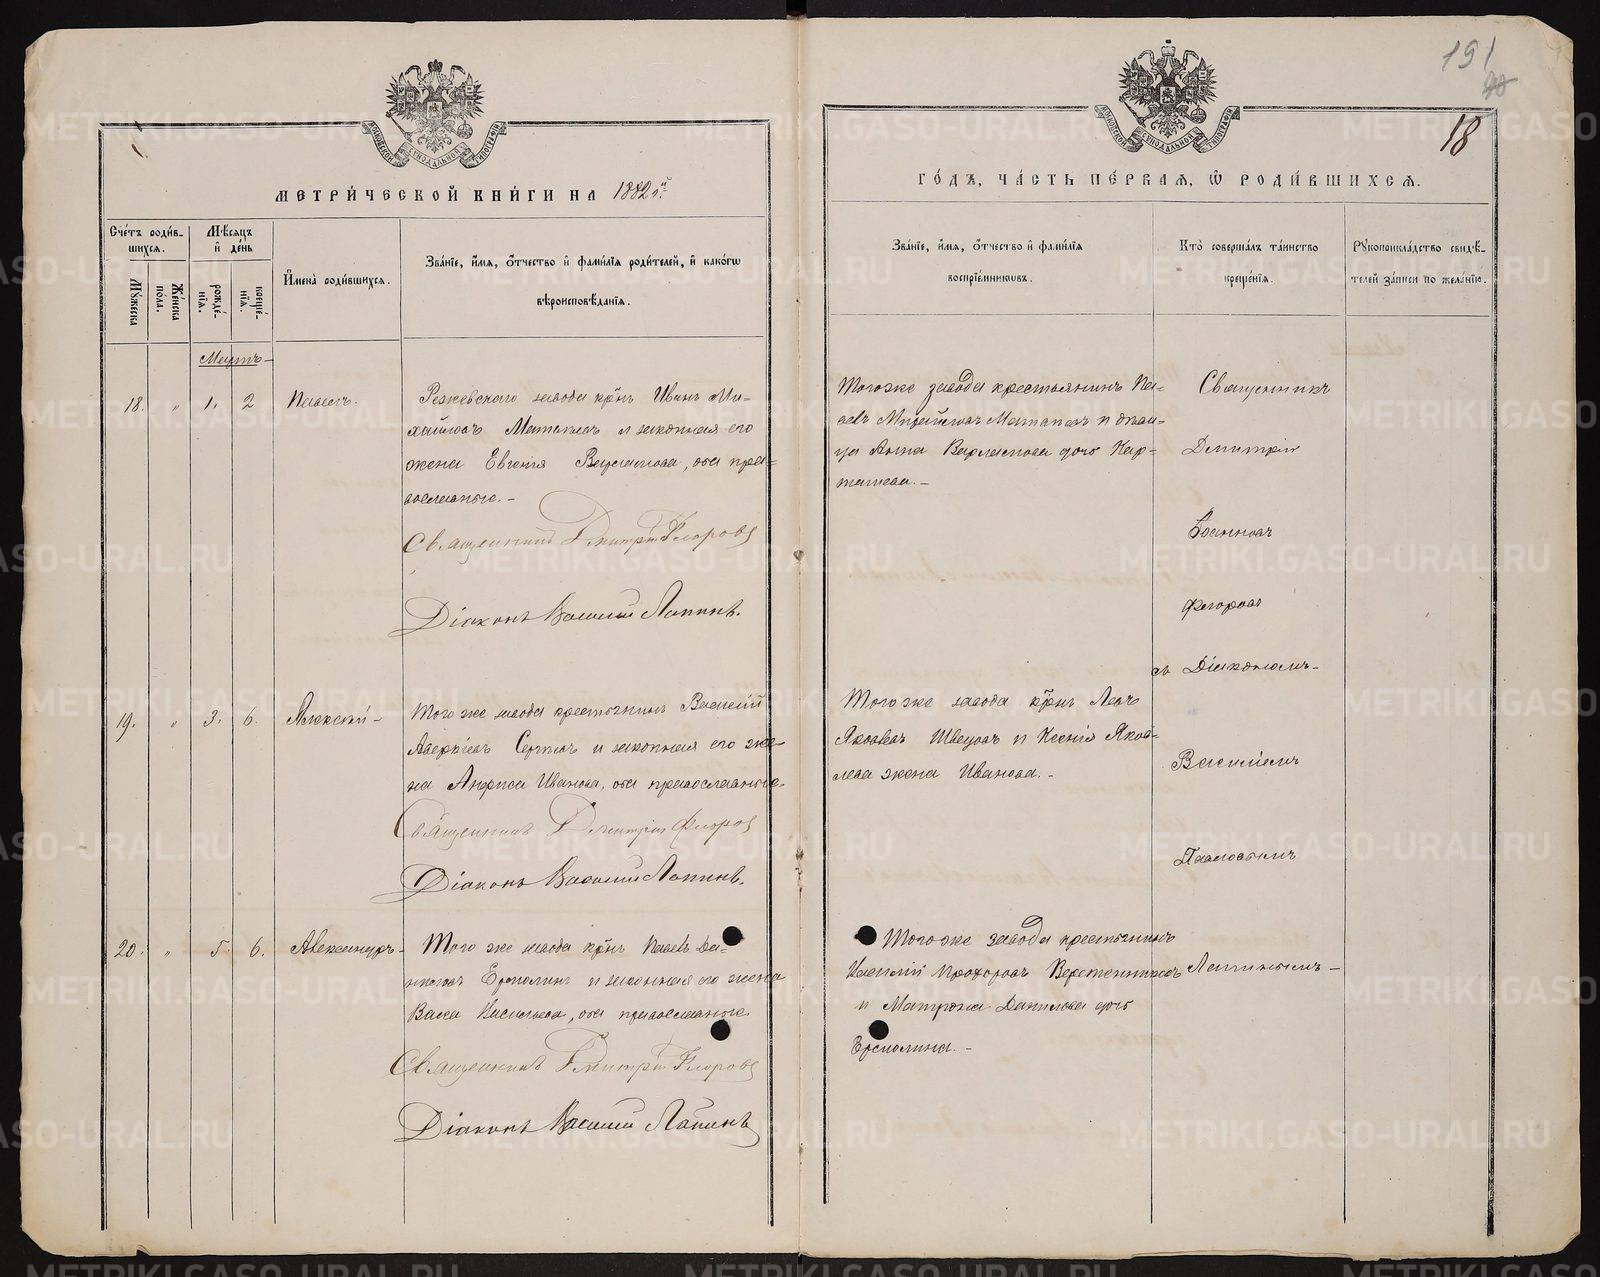 191
18
МЕТРИ́ЧЕСКОЙ КНИ́ГИ НА 1882 г.
ГО́ДЪ, ЧА́СТЬ ПЕ́РВАЯ, Ѡ РОДИ́ВШИХСЯ.
Сче́тъ роди́в-
шихся.
Му́жеска
Же́нска
по́ла.
Мѣ́сяцъ
и де́нь
рожде́-
нїя.
креще́-
нїя.
Имена̀ роди́вшихся.
Зва́нїе, и́мя, о́тчество и фами́лїя роди́телей, и како́гѡ
вѣроисповѣ́данїя.
Зва́нїе, и́мя, о́тчество и фами́лїя
воспрїе́мниковъ.
Кто̀ соверша́лъ та́инство
креще́нїя.
Рꙋкоприкла́дство свидѣ́-
телей за́писи по жела́нїю.
Мартъ
18. " 1. 2 Павелъ.
Режевскаго завода кр҃нъ Иванъ Ми-
хайловъ и законная его
жена Евгенія, оба пра-
вославные. -
Священникъ Дмитрій Флоровъ
Діаконъ Василій Лапинъ.
Тогоже завода крестьянинъ Па-
велъ и дѣви-
ца Анна Варламова дочь Кар-
ташева. -
Священникъ
Дмитрій
Іоанновъ
Флоровъ
съ Діакономъ-
Василіемъ
Павловымъ
Лапинымъ-
19. " 3. 6. Алексѣй -
Того же завода крестьянинъ Василій
Аверкіевъ Сергѣевъ и законная его же-
на Анфиса Иванова, оба православные.
Священникъ Дмитрій Флоровъ
Діаконъ Василій Лапинъ.
Того же завода кр҃нъ Левъ
Яковлевъ Швецовъ и Ксенія Яков-
лева жена Иванова. -
20. " 5. 6. Александръ-
Того же завода кр҃нъ Павелъ Да-
ниловъ Ермолинъ и законная его жена
Васса Васильева, оба православные.
Священникъ Дмитрій Флоровъ
Діаконъ Василій Лапинъ
Тогоже завода крестьянинъ
Василій Прохоровъ
и Матрона Данилова дочь
Ермолина. -
METRIKI.GASO-URAL.RU